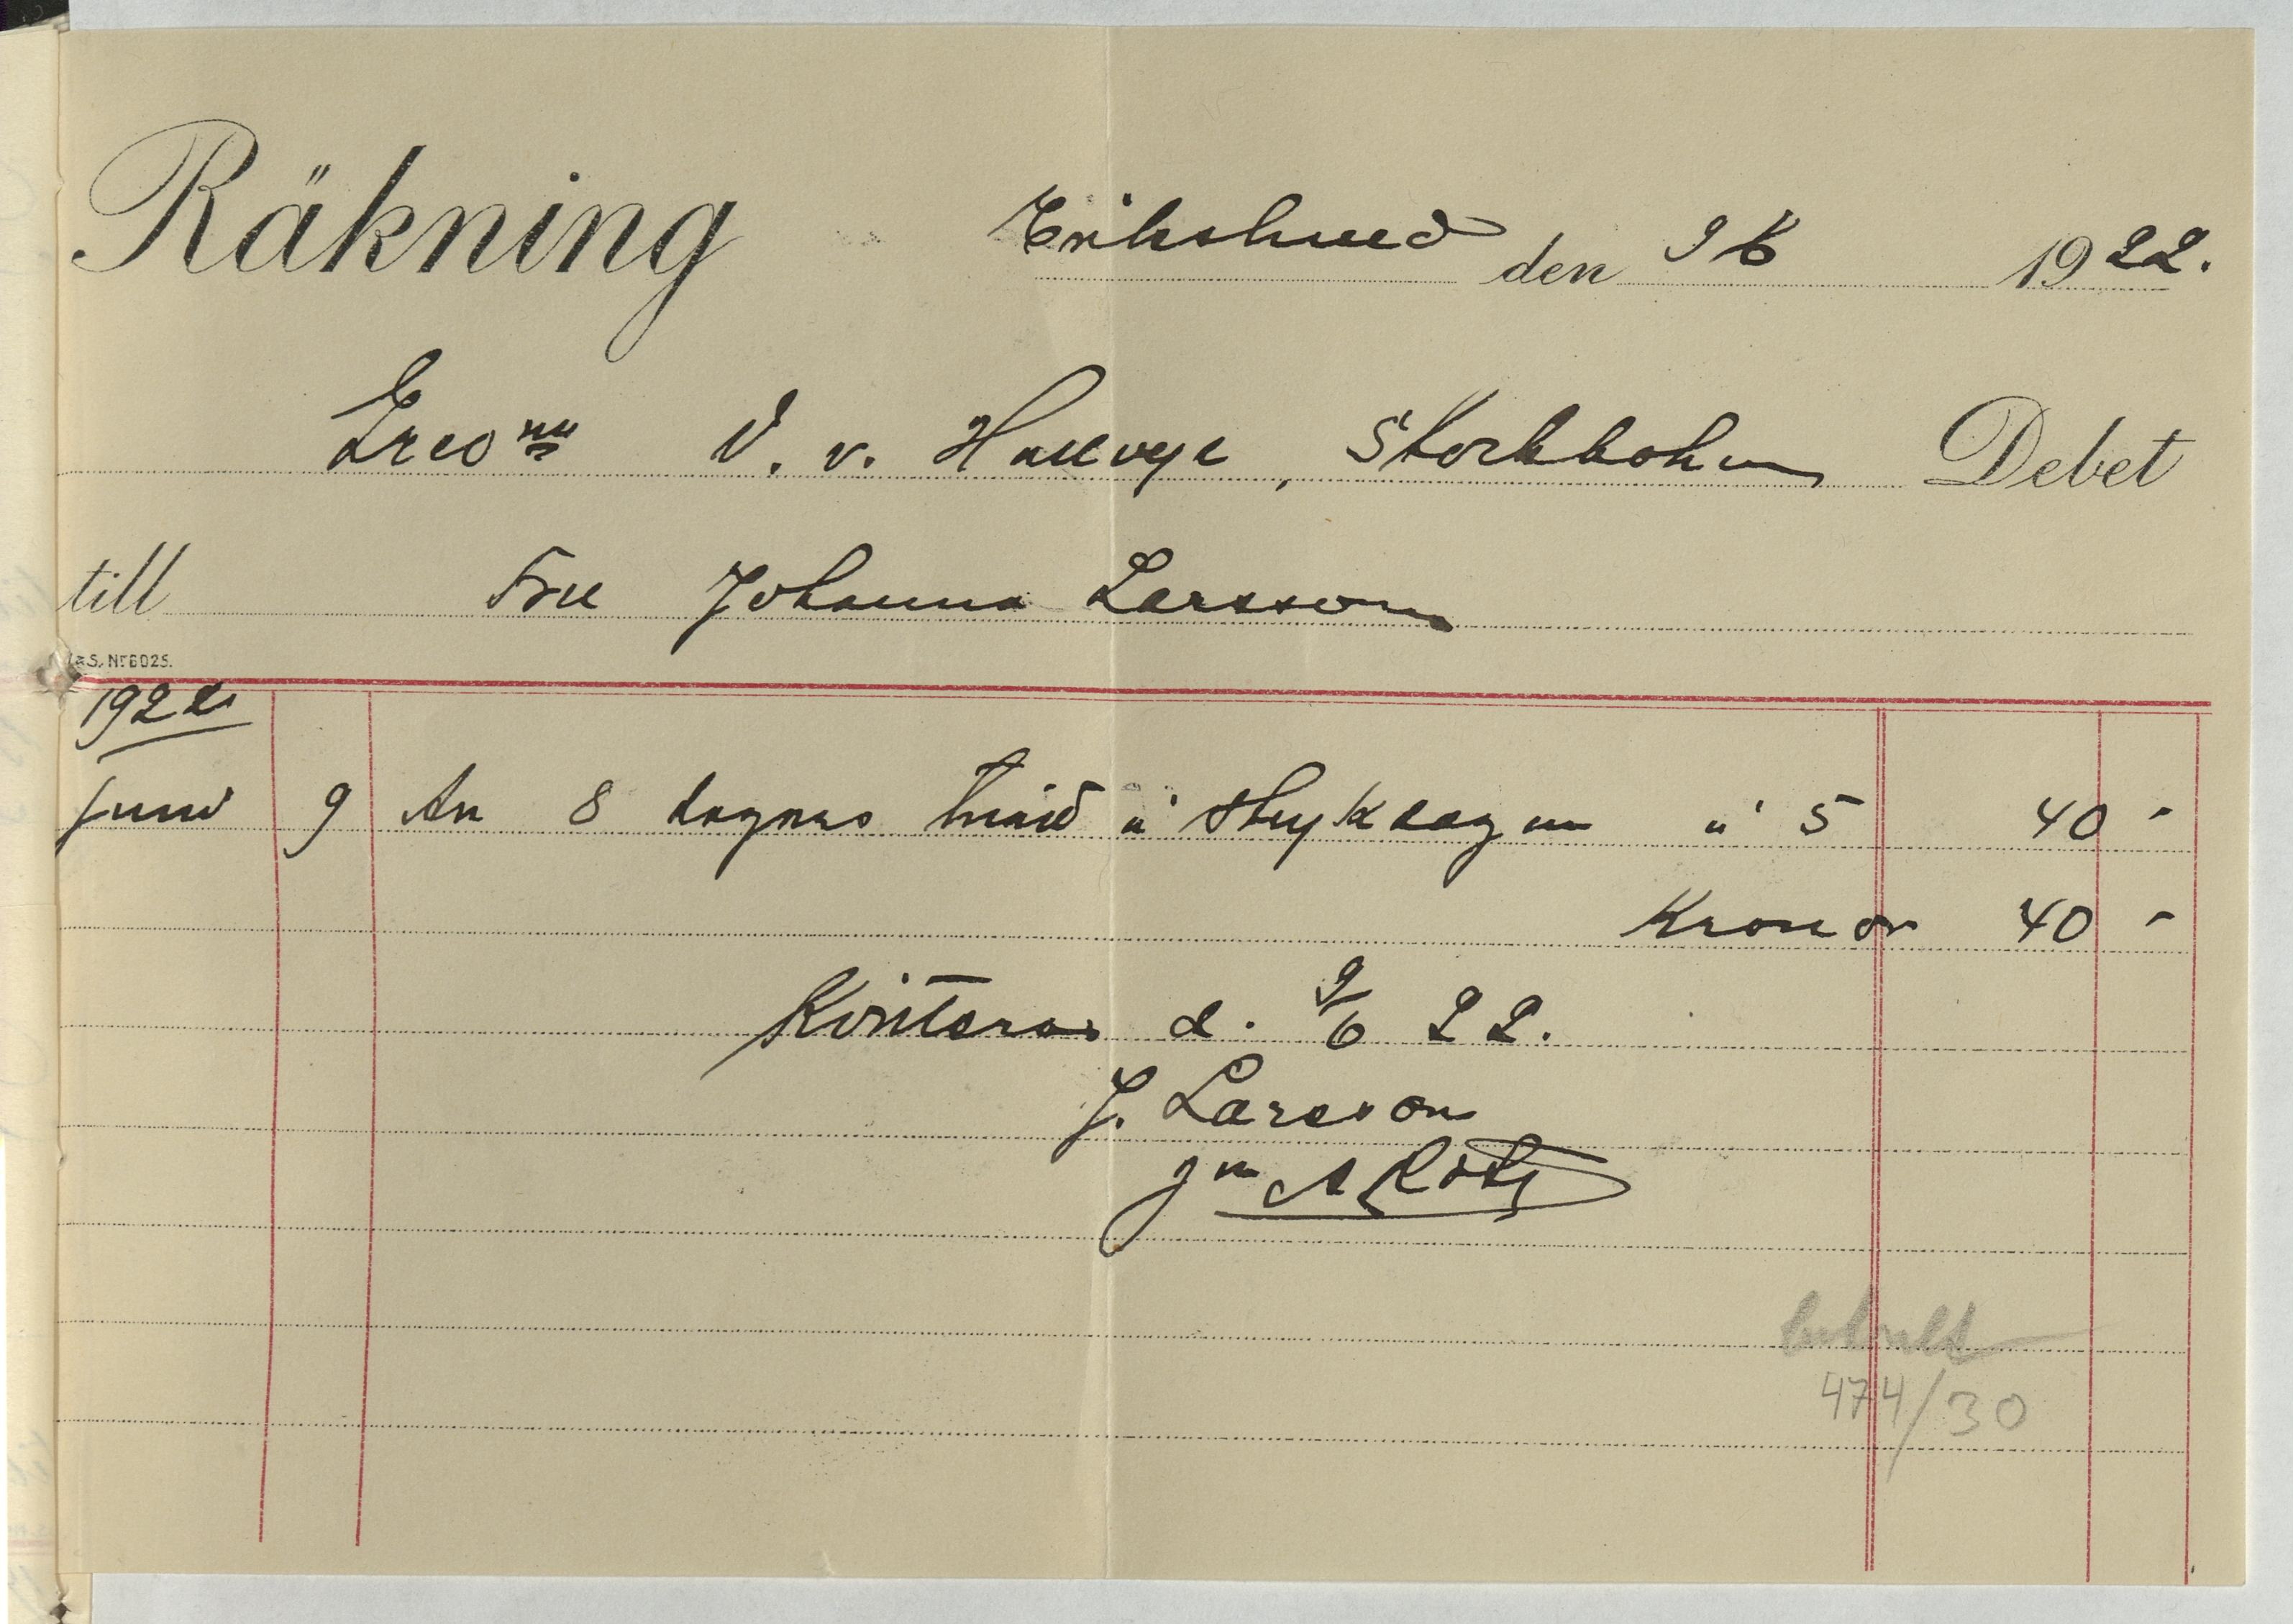 Räkning Erikslund den 9/6 1922.
Grev:nn W. v. Hallwyl, Stockholm Debet
till Fru Johanna Larsson
Nr 6025.
1922
Juni 9 An 8 dagars à 5 40 -
Kronor 40 -
Kvitteras d. 9/6 22.
J. Larsson
gm A
betalt
474/30